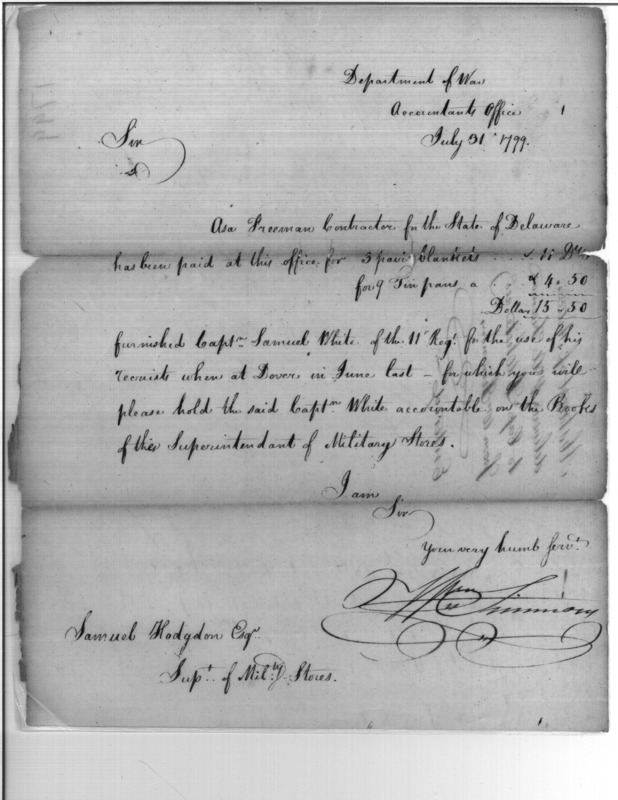 Department of War
Accountants Office
July 31st 1799.
Sir
Asa Freeman Contractor for the State of Delaware
has been paid at this office for 3 pair blankets 11 Dls
for 9 Tin pans a 4. 50
Dollars 15. 50
furnished Captn Samuel White of the 11th Regt for the use of his
recruits when at Dover in June last – for which you will
please hold the said Captn White accountable on the Books
of the Superintendant of Military Stores.
I am
Sir
Your very humb servt
Wm Simmons
Samuel Hodgdon Esqr
Supt. of Milty Stores.
1799